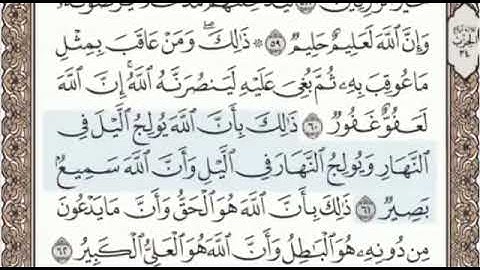 وَإِنَّ ٱللَّهَ لَعَلِيمٌ حَلِيمٌ ٥٩ ۞ ذَٰلِكَۖ وَمَنْ عَاقَبَ بِمِثْلِ
مَا عُوقِبَ بِهِۦ ثُمَّ بُغِىَ عَلَيْهِ لَيَنصُرَنَّهُ ٱللَّهُۚ إِنَّ ٱللَّهَ
لَعَفُوٌّ غَفُورٌ ٦٠ ذَٰلِكَ بِأَنَّ ٱللَّهَ يُولِجُ ٱلَّيْلَ فِى
ٱلنَّهَارِ وَيُولِجُ ٱلنَّهَارَ فِى ٱلَّيْلِ وَأَنَّ ٱللَّهَ سَمِيعٌۢ
بَصِيرٌ ٦١ ذَٰلِكَ بِأَنَّ ٱللَّهَ هُوَ ٱلْحَقُّ وَأَنَّ مَا يَدْعُونَ
مِن دُونِهِۦ هُوَ ٱلْبَٰطِلُ وَأَنَّ ٱللَّهَ هُوَ ٱلْعَلِىُّ ٱلْكَبِيرُ ٦٢
الحزب
٣٤